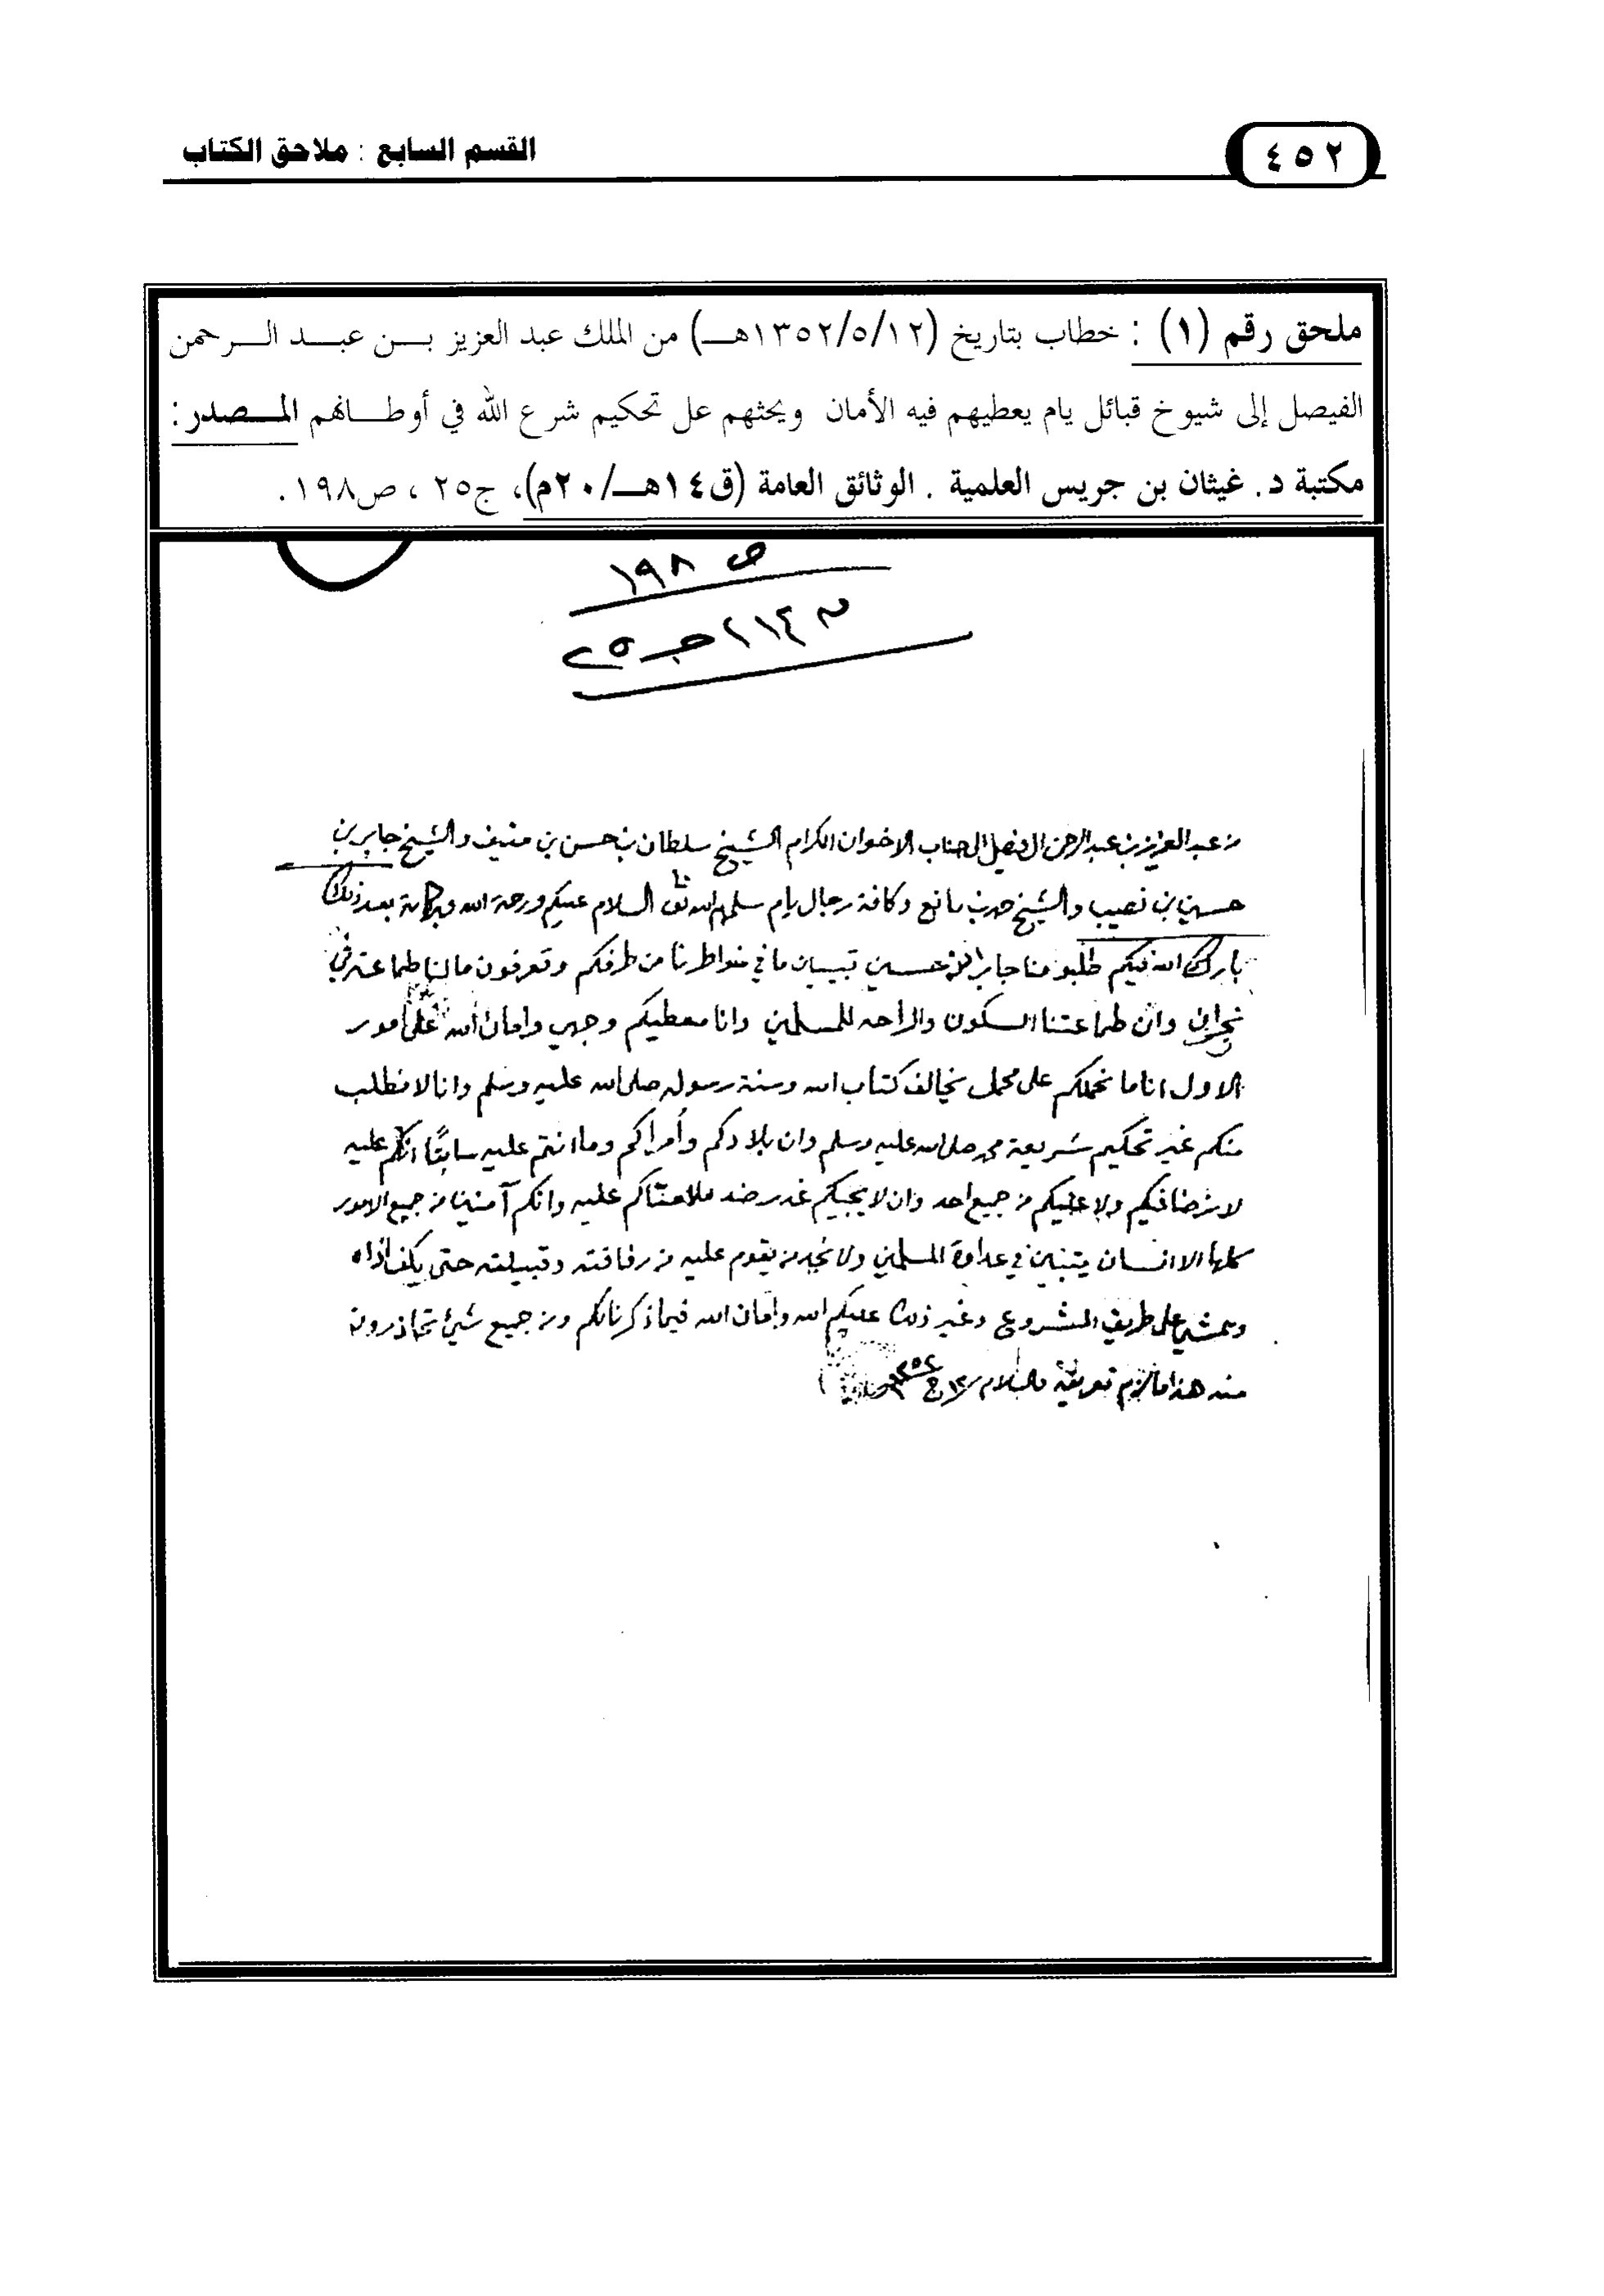 القسم السابع : ملاحق الكتاب
٤٥٢
ملحق رقم (١) : خطاب بتاريخ (١٣٥٢/٥/١٢هـ) من الملك عبد العزيز بن عبد الرحمن
الفيصل إلى شيوخ قبائل يام يعطيهم فيه الأمان ويحثهم عل تحكيم شرع الله في أوطانهم المصدر :
مكتبة د. غيثان بن جريس العلمية . الوثائق العامة (ق١٤هـ/٢٠م)، ج٢٥ ، ص١٩٨.
ص ١٩٨
جـ ٢٥
من عبد العزيز بن عبد الرحمن الفيصل الى جناب الاخوان الكرام الشيخ سلطان بن حسن بن منيف والشيخ جابر بن
حسين بن نصيب والشيخ حمد بن مانع وكافة رجال يام سلمهم الله تعالى السلام عليكم ورحمة الله وبركاته بعد ذلك
بارك الله فيكم طلبو منا جابر حسين تبيان ما في خواطرنا من طرفكم وتعرفون ما لنا طماعة في
نجران وان طماعتنا السكون والراحه للمسلمين وانا معطيكم وجهي وامان الله على امور
الاول انا ما نحملكم على محمل يخالف كتاب الله وسنة رسوله صلى الله عليه وسلم وانا لا نطلب
منكم غير تحكيم شريعة محمد صلى الله عليه وسلم وان بلادكم وأمراكم وما انتم عليه سابقًا انكم عليه
لا نرضا فيكم ولا عليكم من جميع احد وان لا يجيكم غدر ضد عليه وانكم آمنين من جميع الامور
كلها الا انسان يتبين في عداوة المسلمين ولا نجد من يقوم عليه من رفاقته وقبيلته حتى يكف اذاه
ويمشي على طريق المشروع وغير ذلك عليكم الله وامان الله فيما ذكرنا لكم ومن جميع شيئ تحاذرونه
منه هذا ما لزم تعريفه والسلام ١٢ ١٣٥٢